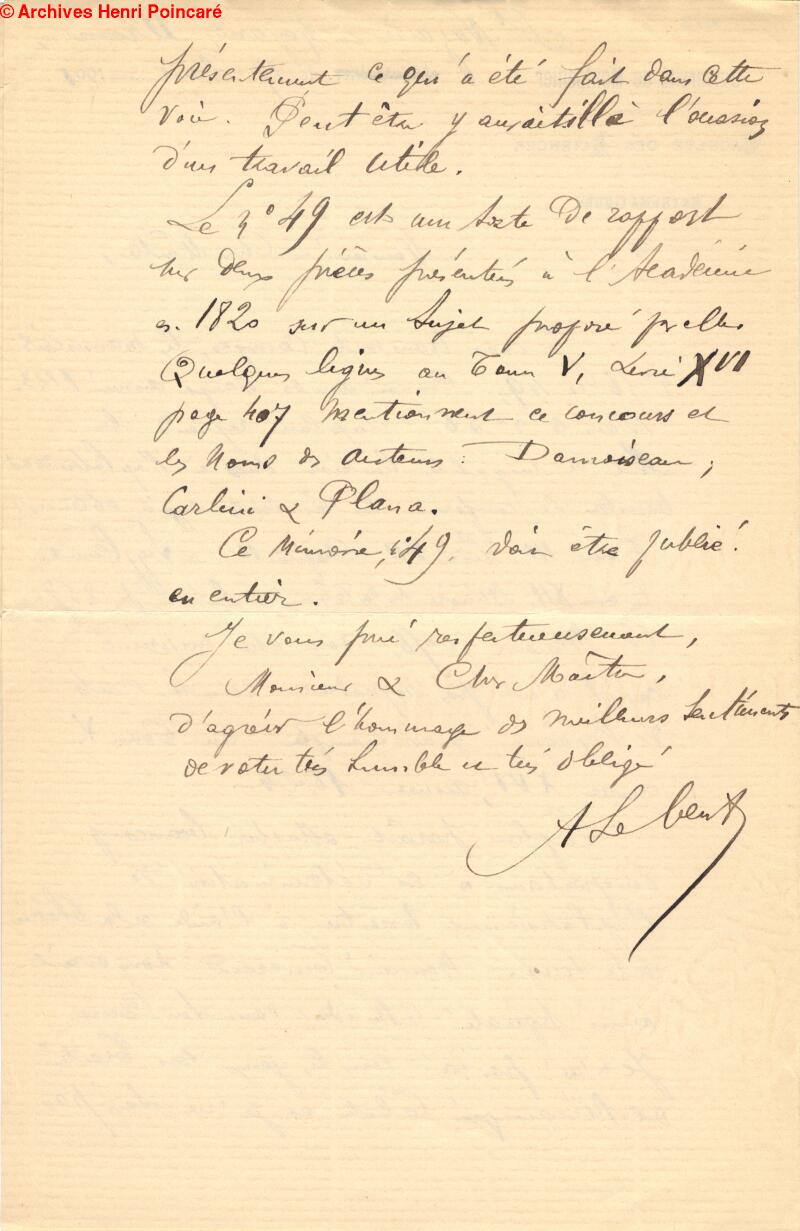 © Archives Henri Poincaré
présentement ce qui a été fait dans cette
voie. Peut être y aurait il là l'occasion
d'un travail utile.
Le n° 49 est un texte de rapport
sur deux pièces présentées à l'Académie
en 1820 sur un sujet proposé par elle.
Quelques lignes au Tome V, Livre XVI
page 407 mentionnent ce concours et
les noms des auteurs : Damoiseau,
Carlini & Plana.
Ce Mémoire, n° 49, doit être publié
en entier.
Je vous prie respectueusement,
Monsieur & Cher Maître,
d'agréer l'hommage des meilleurs sentiments
de votre très humble et très obligé